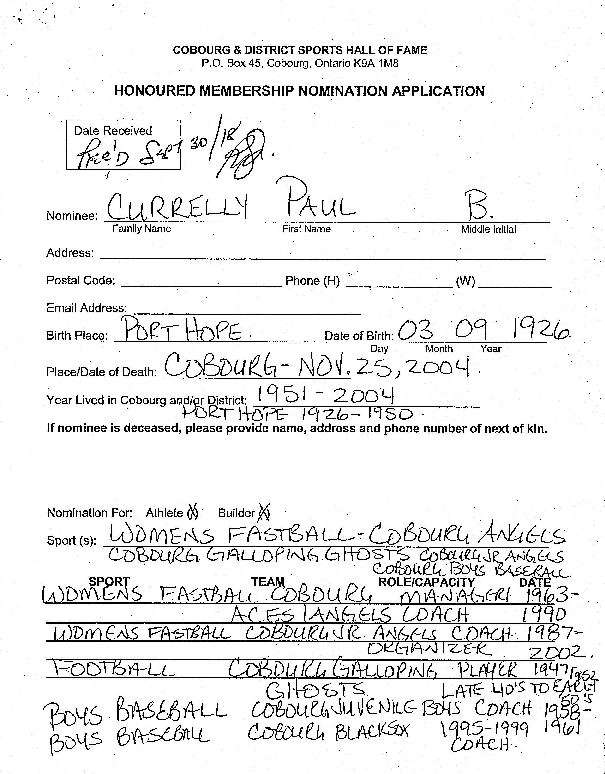 COBOURG & DISTRICT SPORTS HALL OF FAME
P.O. Box 45, Cobourg, Ontario K9A 1M8
HONOURED MEMBERSHIP NOMINATION APPLICATION
Date Received
Rec'd Sept 30/18
Nominee: CURRELLY PAUL B.
Family Name First Name Middle Initial
Address:
Postal Code: Phone (H) (W)
Email Address:
Birth Place: PORT HOPE Date of Birth: 03 09 1926
Day Month Year
Place/Date of Death: COBOURG - NOV. 25, 2004.
Year Lived in Cobourg and/or District: 1951 - 2004
PORT HOPE 1926 - 1950.
If nominee is deceased, please provide name, address and phone number of next of kin.
Nomination For: Athlete (X) Builder (X)
Sport (s): WOMENS FASTBALL - COBOURG ANGELS
COBOURG GALLOPING GHOSTS COBOURG JR ANGELS
COBOURG BOYS BASEBALL
SPORT TEAM ROLE/CAPACITY DATE
WOMENS FASTBALL COBOURG MANAGER/ 1963-
ACES/ANGELS COACH 1990
WOMENS FASTBALL COBOURG JR. ANGELS COACH 1987-
ORGANIZER 2002.
FOOTBALL COBOURG GALLOPING PLAYER 1947
GHOSTS LATE 40'S TO EARLY 50'S
BOYS BASEBALL COBOURG JUVENILE BOYS COACH 1958-
BOYS BASEBALL COBOURG BLACKSOX 1995-1999 1961
COACH.